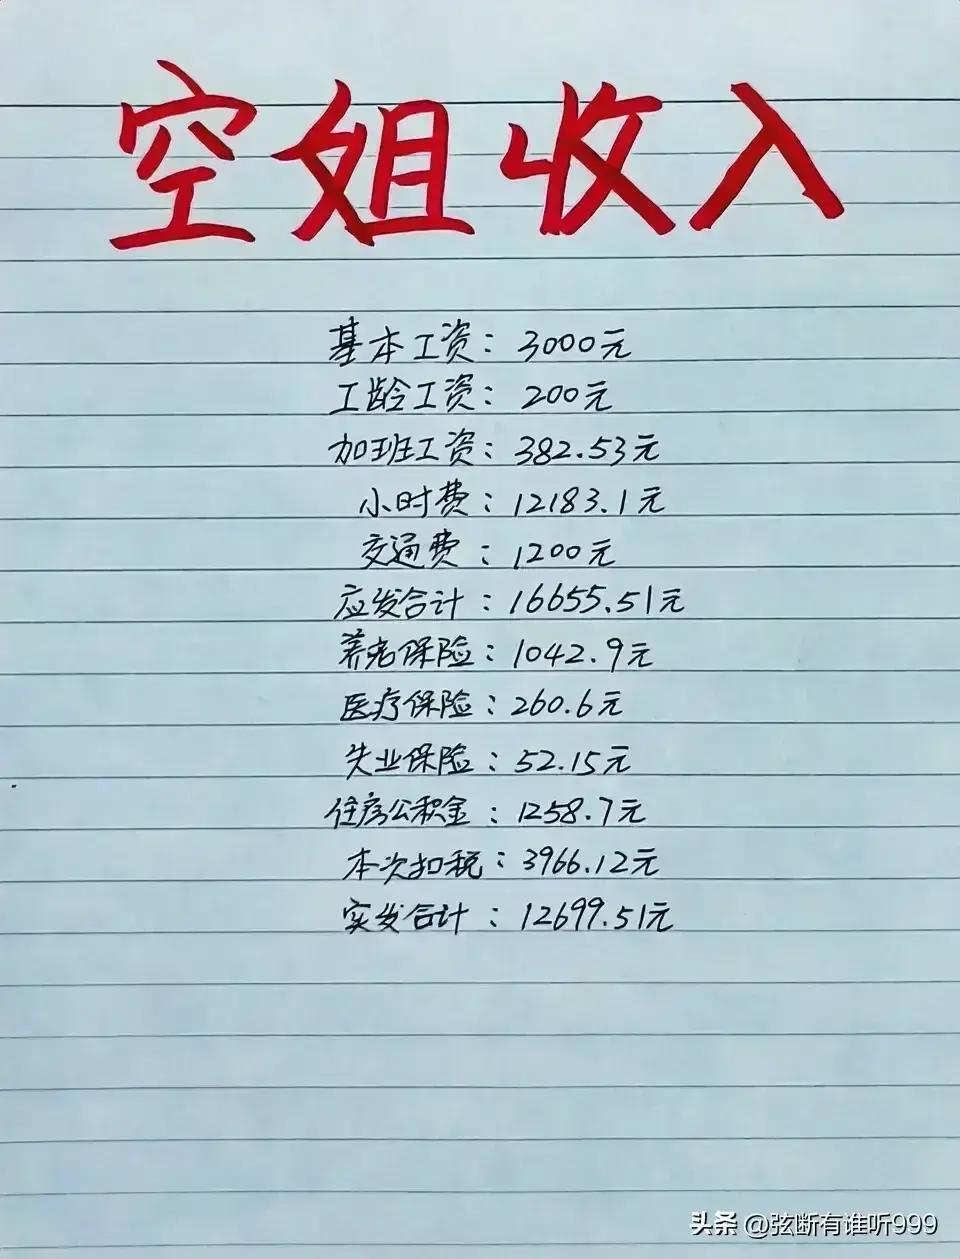 空姐收入
基本工资：3000元
工龄工资：200元
加班工资：382.53元
小时费：12183.1元
交通费：1200元
应发合计：16655.51元
养老保险：1042.9元
医疗保险：260.6元
失业保险：52.15元
住房公积金：1258.7元
本次扣税：3966.12元
实发合计：12699.51元
头条 @弦断有谁听999